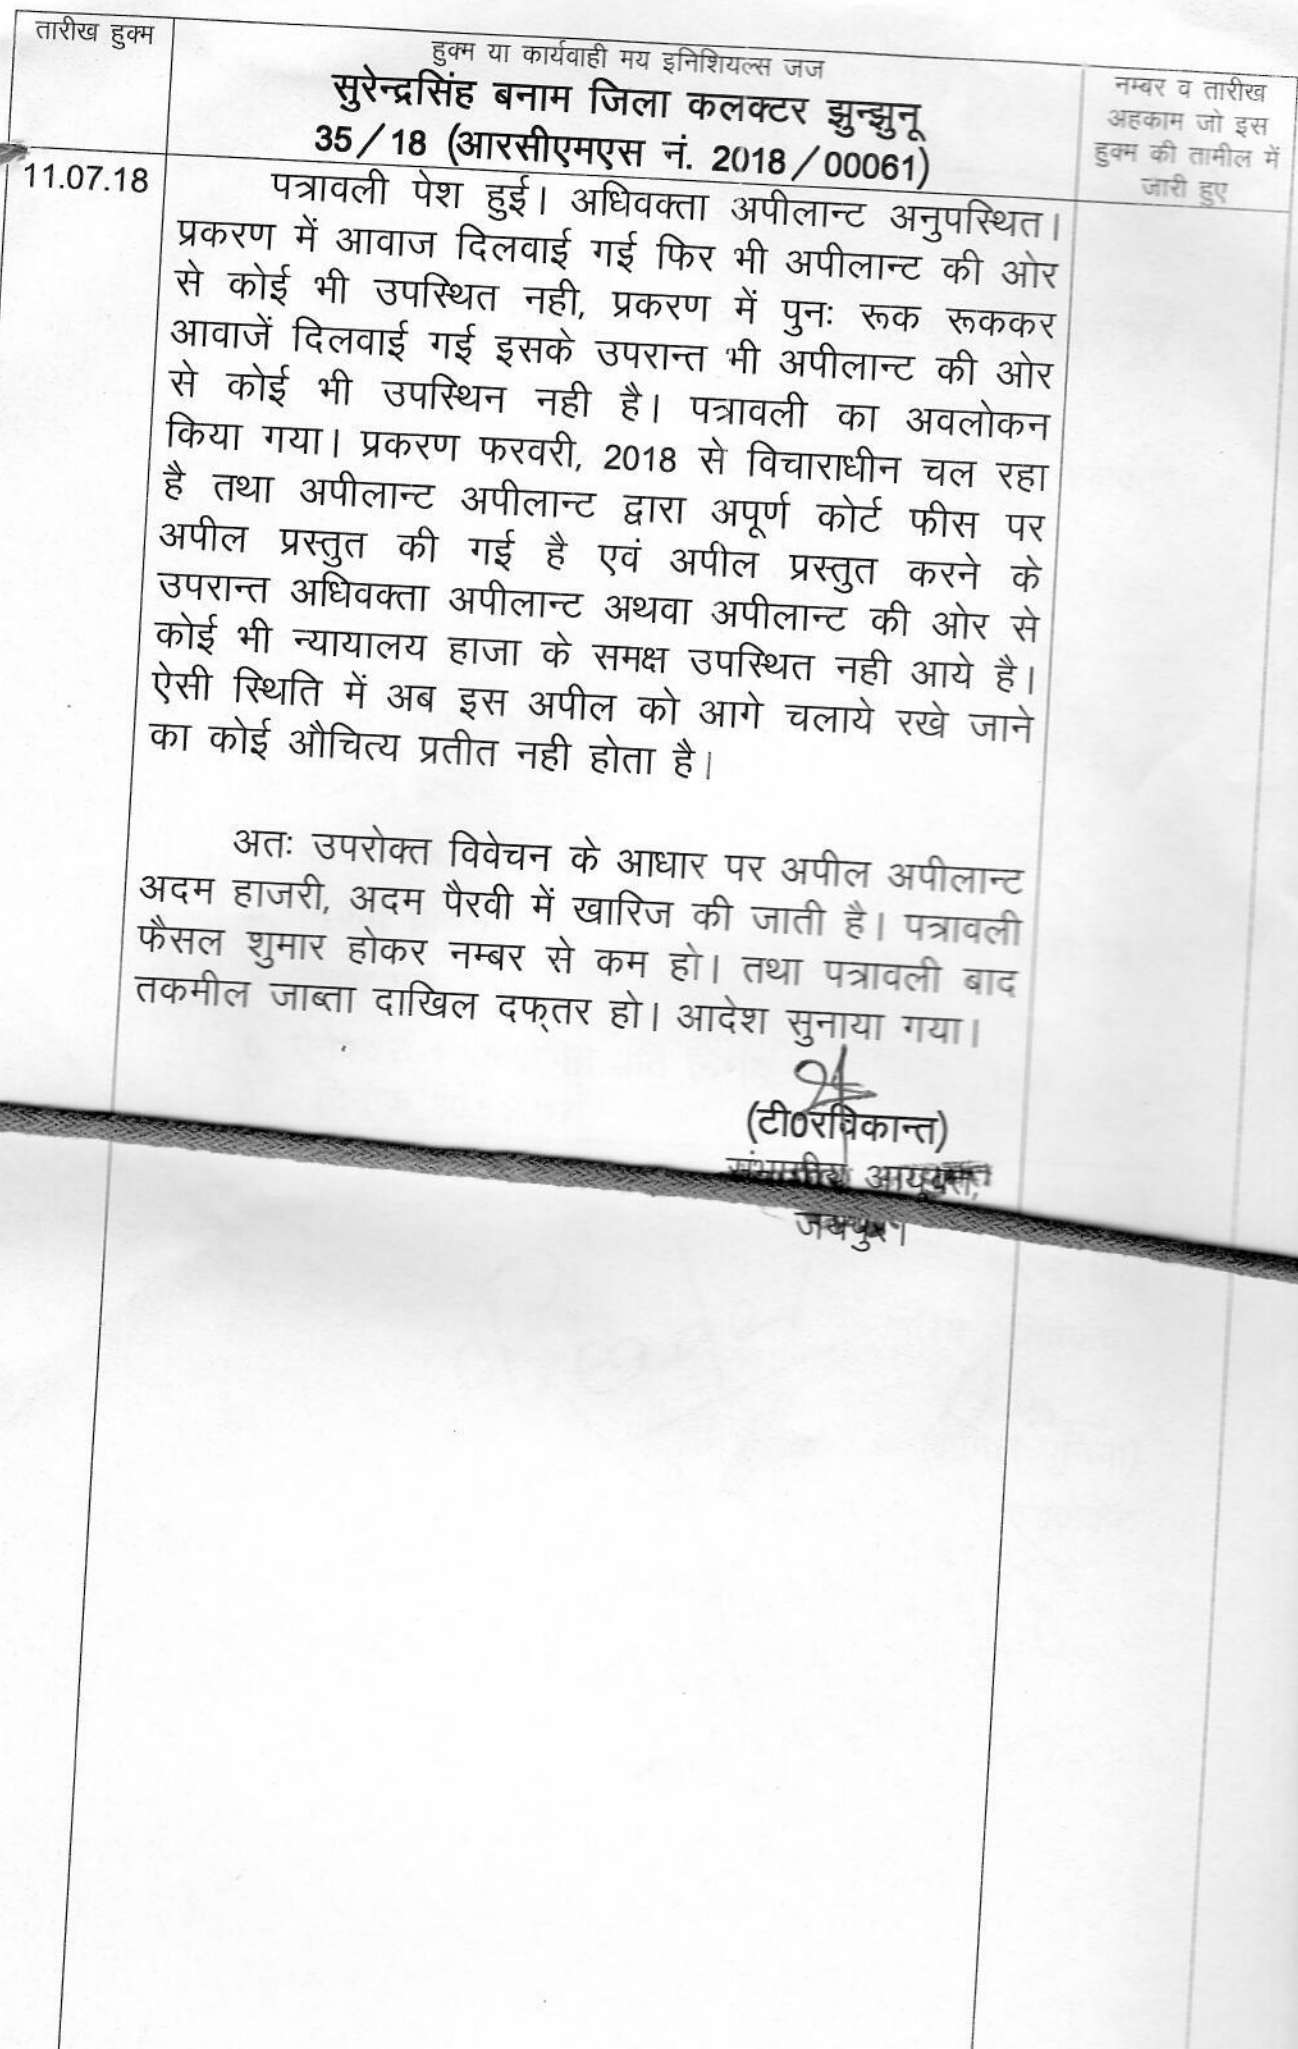 तारीख हुक्म
हुक्म या कार्यवाही मय इनिशियल्स जज
सुरेन्द्रसिंह बनाम जिला कलक्टर झुन्झुनू
35/18 (आरसीएमएस नं. 2018/00061)
नम्बर व तारीख
अहकाम जो इस
हुक्म की तामील में
जारी हुए
11.07.18
पत्रावली पेश हुई। अधिवक्ता अपीलान्ट अनुपस्थित।
प्रकरण में आवाज दिलवाई गई फिर भी अपीलान्ट की ओर
से कोई भी उपस्थित नही, प्रकरण में पुनः रूक रूककर
आवाजें दिलवाई गई इसके उपरान्त भी अपीलान्ट की ओर
से कोई भी उपस्थिन नही है। पत्रावली का अवलोकन
किया गया। प्रकरण फरवरी, 2018 से विचाराधीन चल रहा
है तथा अपीलान्ट अपीलान्ट द्वारा अपूर्ण कोर्ट फीस पर
अपील प्रस्तुत की गई है एवं अपील प्रस्तुत करने के
उपरान्त अधिवक्ता अपीलान्ट अथवा अपीलान्ट की ओर से
कोई भी न्यायालय हाजा के समक्ष उपस्थित नही आये है।
ऐसी स्थिति में अब इस अपील को आगे चलाये रखे जाने
का कोई औचित्य प्रतीत नही होता है।
अतः उपरोक्त विवेचन के आधार पर अपील अपीलान्ट
अदम हाजरी, अदम पैरवी में खारिज की जाती है। पत्रावली
फैसल शुमार होकर नम्बर से कम हो। तथा पत्रावली बाद
तकमील जाब्ता दाखिल दफ्तर हो। आदेश सुनाया गया।
(टी0रविकान्त)
संभागीय आयुक्त,
जयपुर।